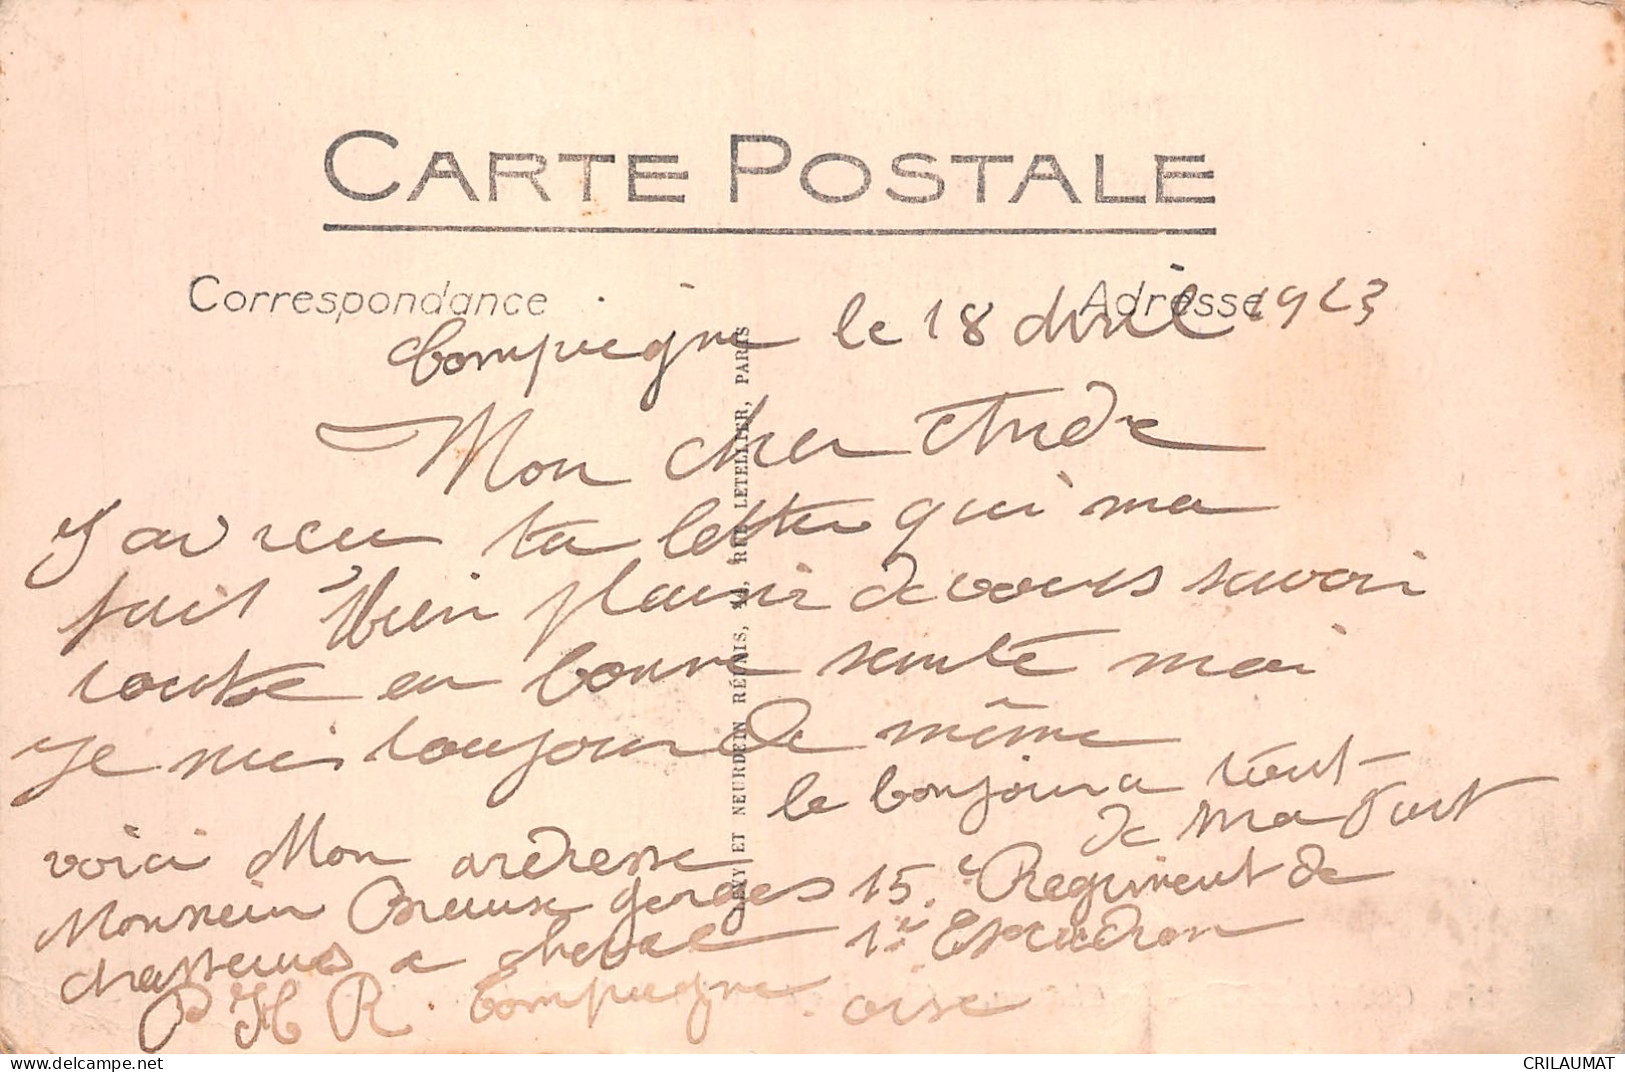 CARTE POSTALE
Correspondance
Adresse
Compiegne le 18 Avril 1923
Mon cher Andre
J ai recu ta lettre qui ma
fait bien plaisir de vous savoir
toute en bonne santé moi
je suis toujour de même
le bonjour a tout
de ma part
voici Mon ardresse
Monsieur georges 15.e Regiment de
chasseurs a cheval 1er Escadron
P H R. Compiegne oise
LEVY ET NEURDEIN RÉUNIS, 44, RUE LETELLIER, PARIS
CRILAUMAT